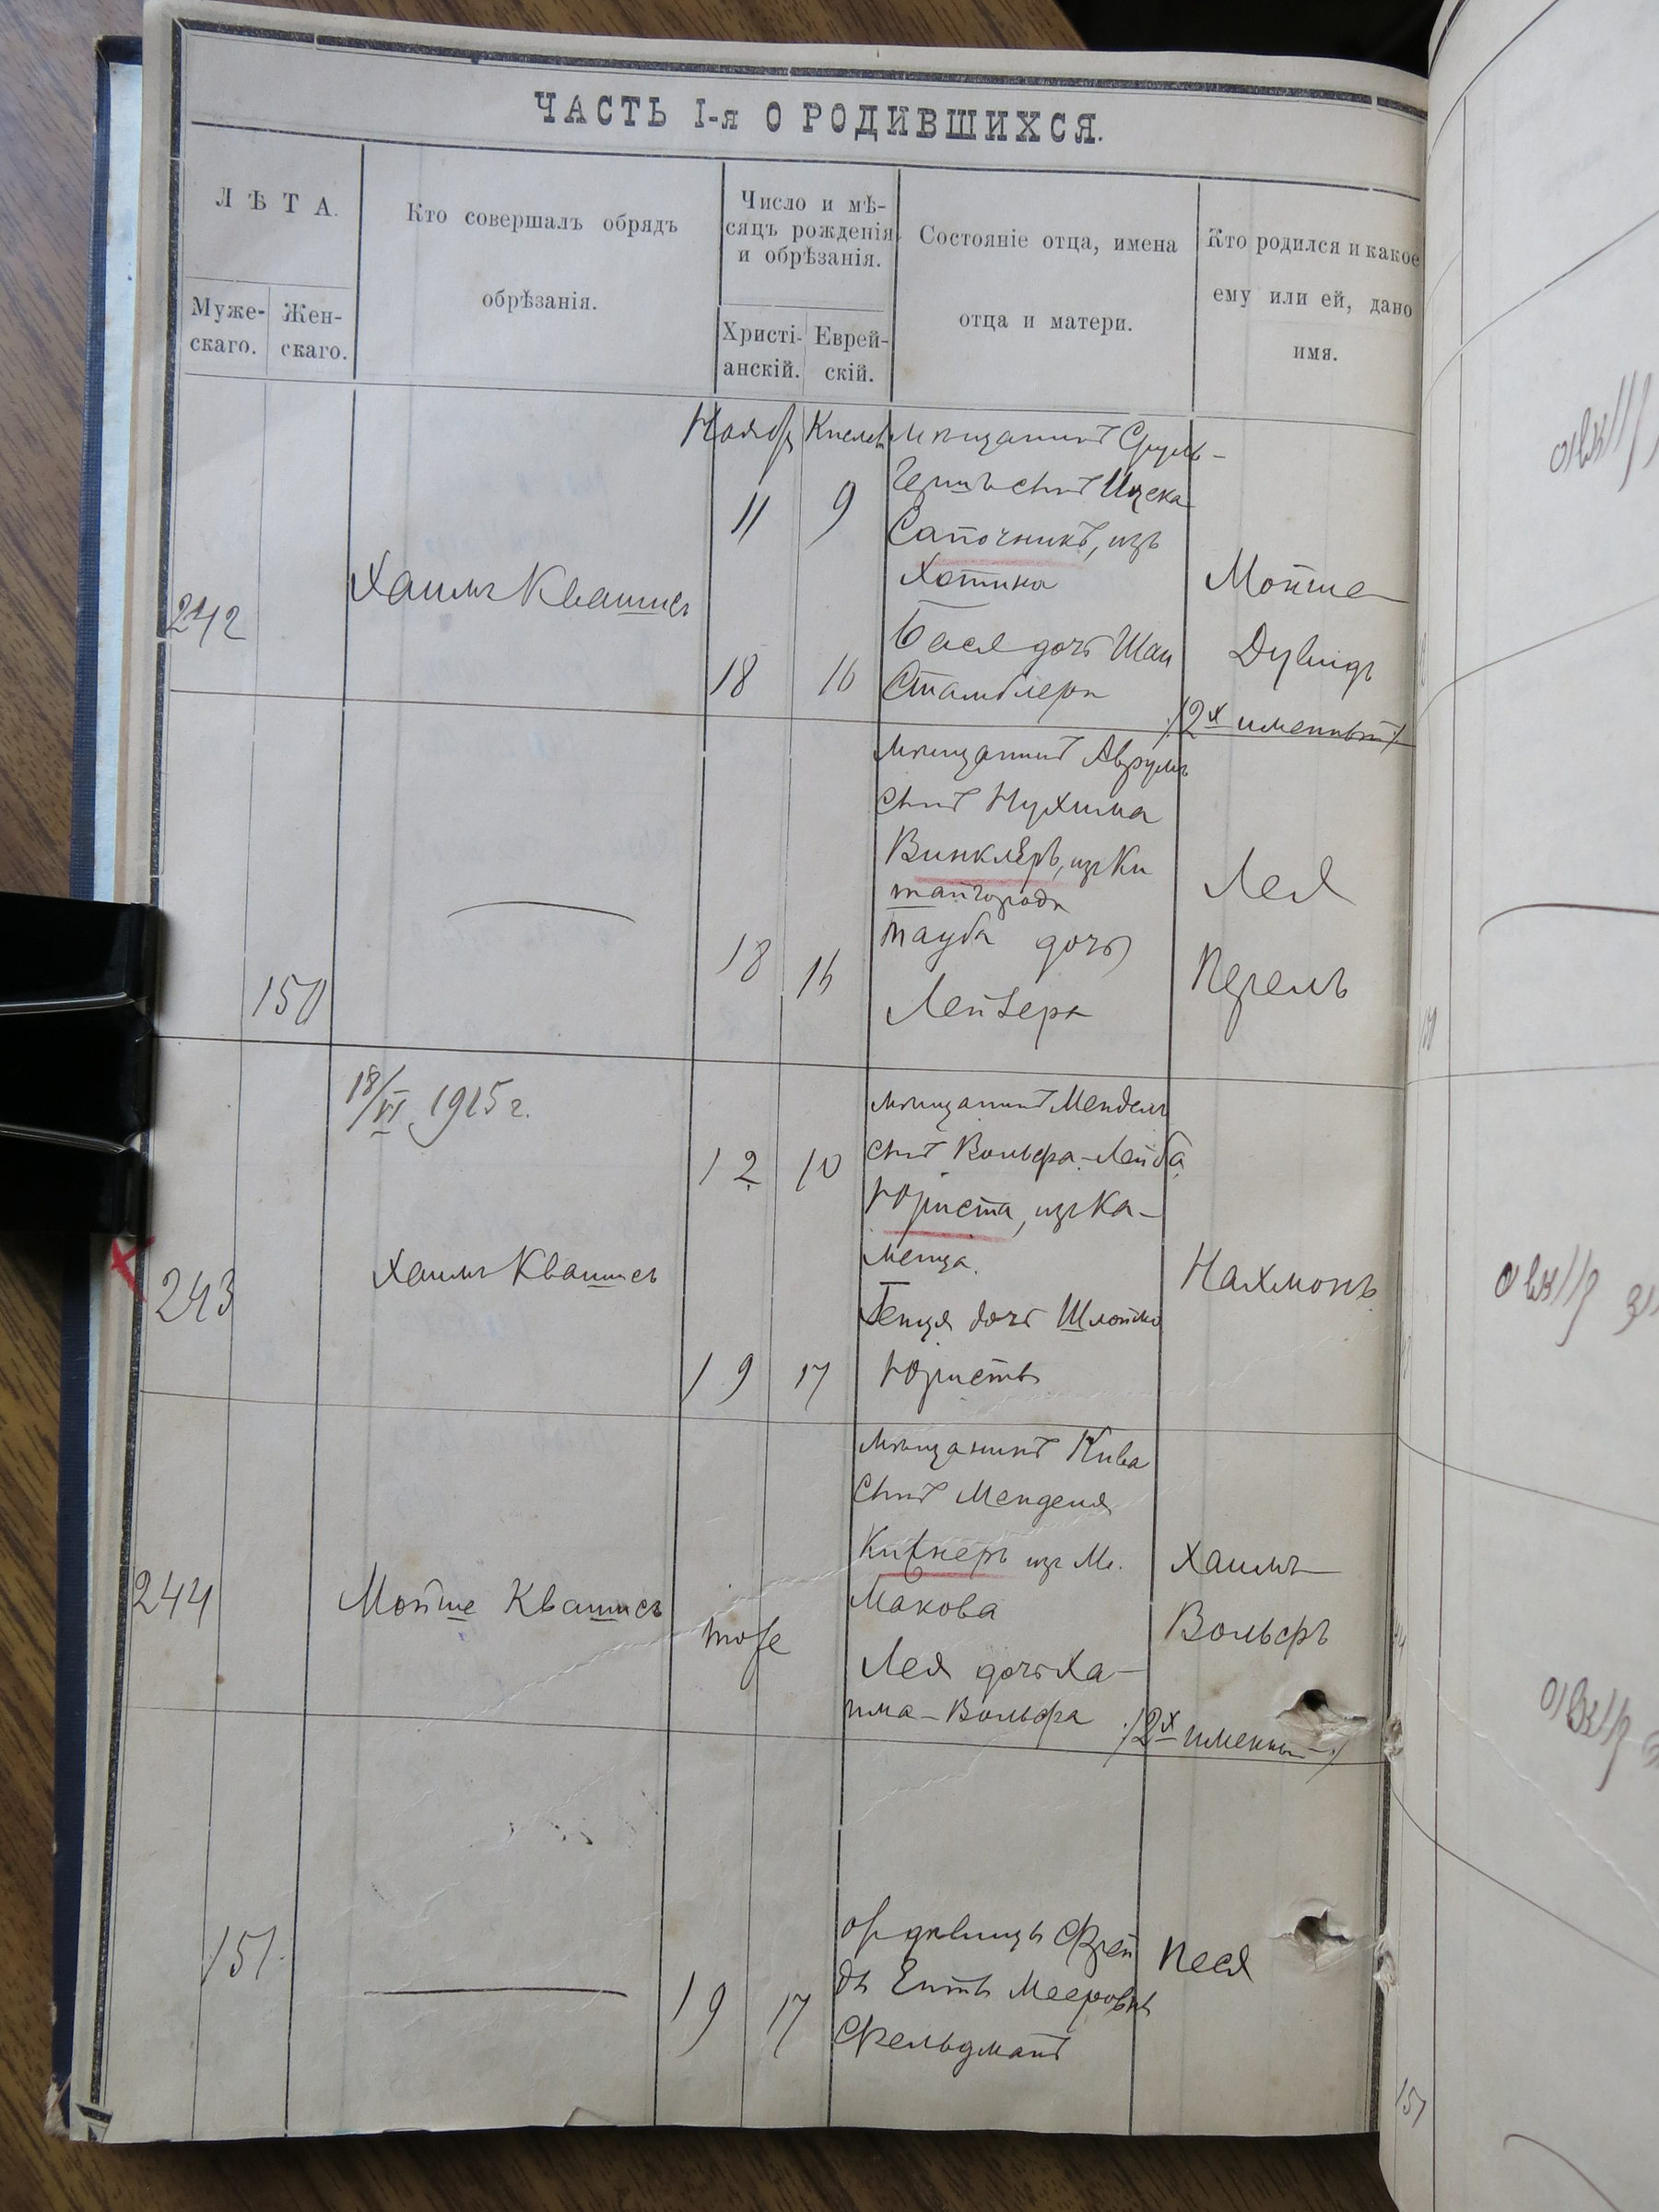 ЧАСТЬ I-я О РОДИВШИХСЯ.
ЛѢТА.
Муже-
скаго.
Жен-
скаго.
Кто совершалъ обрядъ
обрѣзанія.
Число и мѣ-
сяцъ рожденія
и обрѣзанія.
Христі-
анскій.
Еврей-
скій.
Состояніе отца, имена
отца и матери.
Кто родился и какое
ему или ей, дано
имя.
242
Хаимъ Квашисъ
Ноябр
11
18
Кислев
9
16
мѣщанинъ Сруль-
Гершъ сынъ Ицека
Сапочникъ, изъ
Хотина
Бася дочь Шаи
Стамблера
Мойше
Дувидъ
/2х именный/
150
18
16
мѣщанинъ Аврумъ
сынъ Нухима
Винклеръ, изъ Ки
тайгорода
Тауба дочь
Лейзера
Лея
Перель
243
18/VI 1915 г.
Хаимъ Квашисъ
12
19
10
17
мѣщанинъ Мендель
сынъ Вольфа-Лейба
Юриста, изъ Ка-
менца.
Геня дочь Шлоймо
Юристъ
Нахмонъ
244
Мойше Квашисъ
тоже
мѣщанинъ Кива
сынъ Менделя
Китнеръ изъ м.
Макова
Лея дочь Ха-
има-Вольфа
Хаимъ
Вольфъ
/2х именный/
151
19
17
дѣвицы Фрей
ды Ейты Мееровны
Фельдманъ
Песя
151